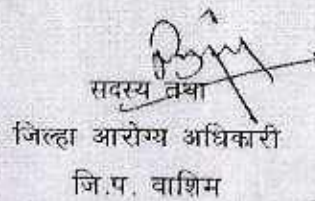 सदस्य तथा
जिल्हा आरोग्य अधिकारी
जि.प. वाशिम